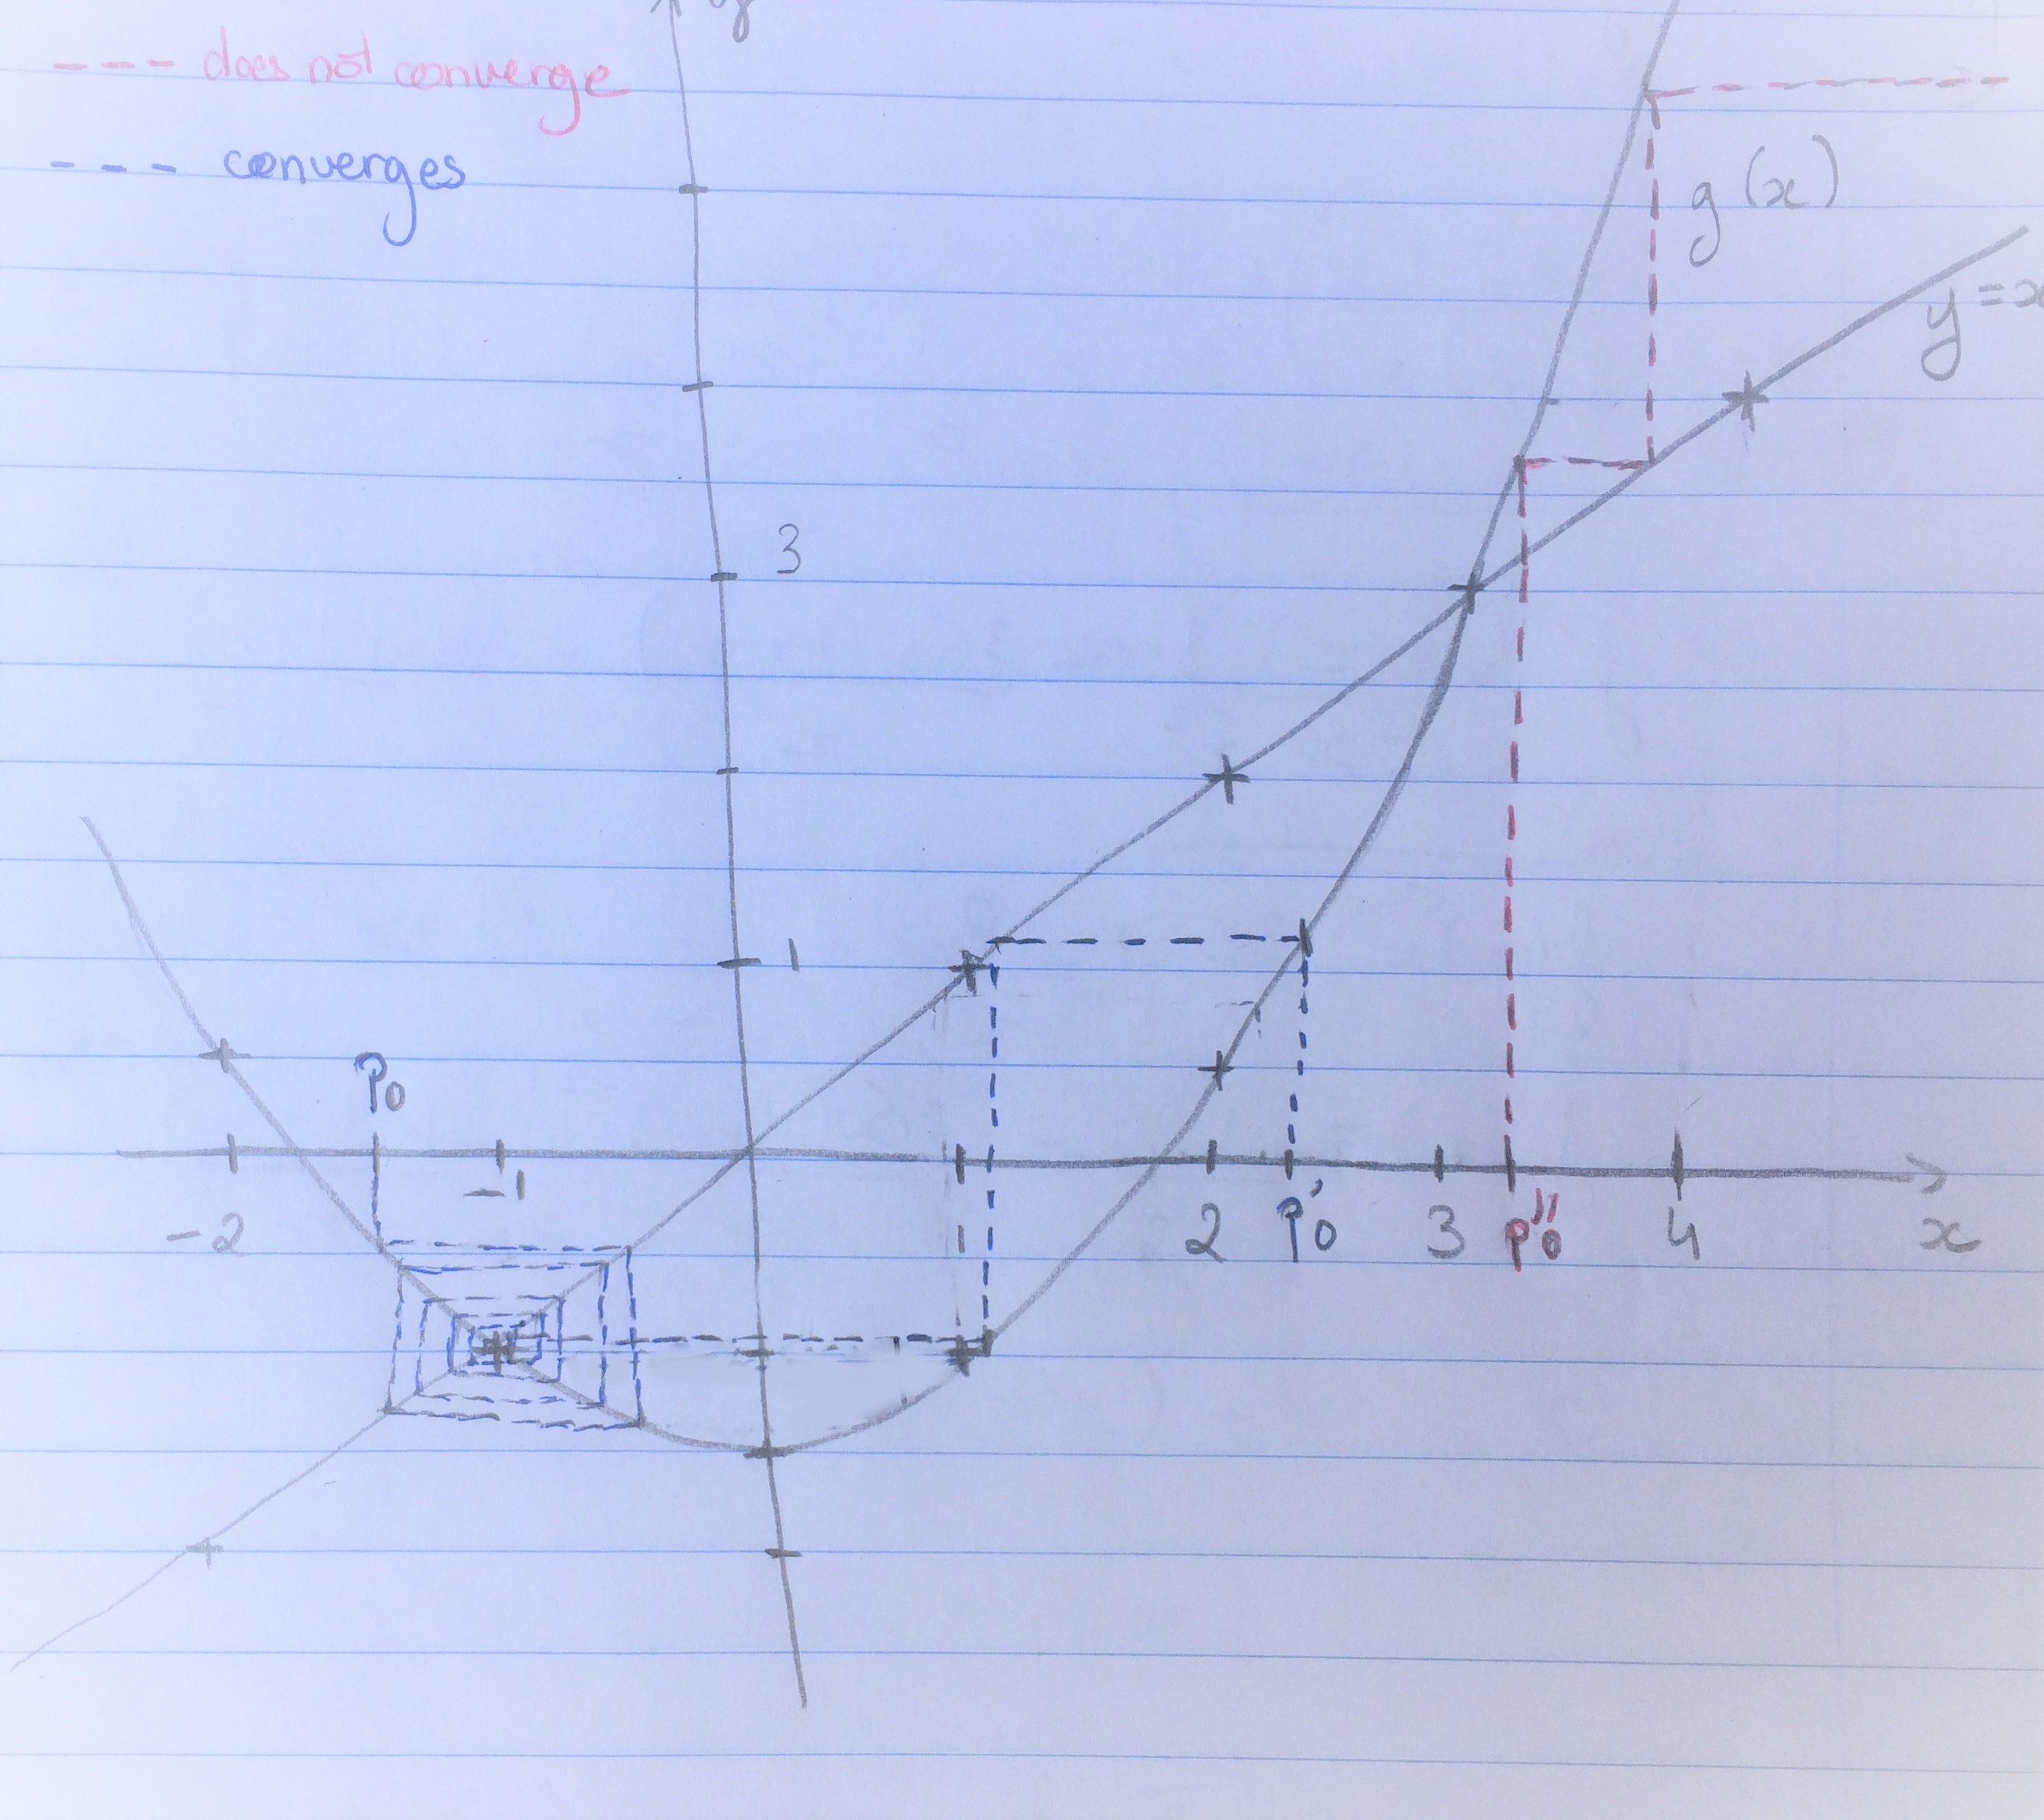 y
--- does not converge
--- converges
g(x)
y=x
3
1
P0
-2
-1
1
2
P'0
3
P"0
4
x